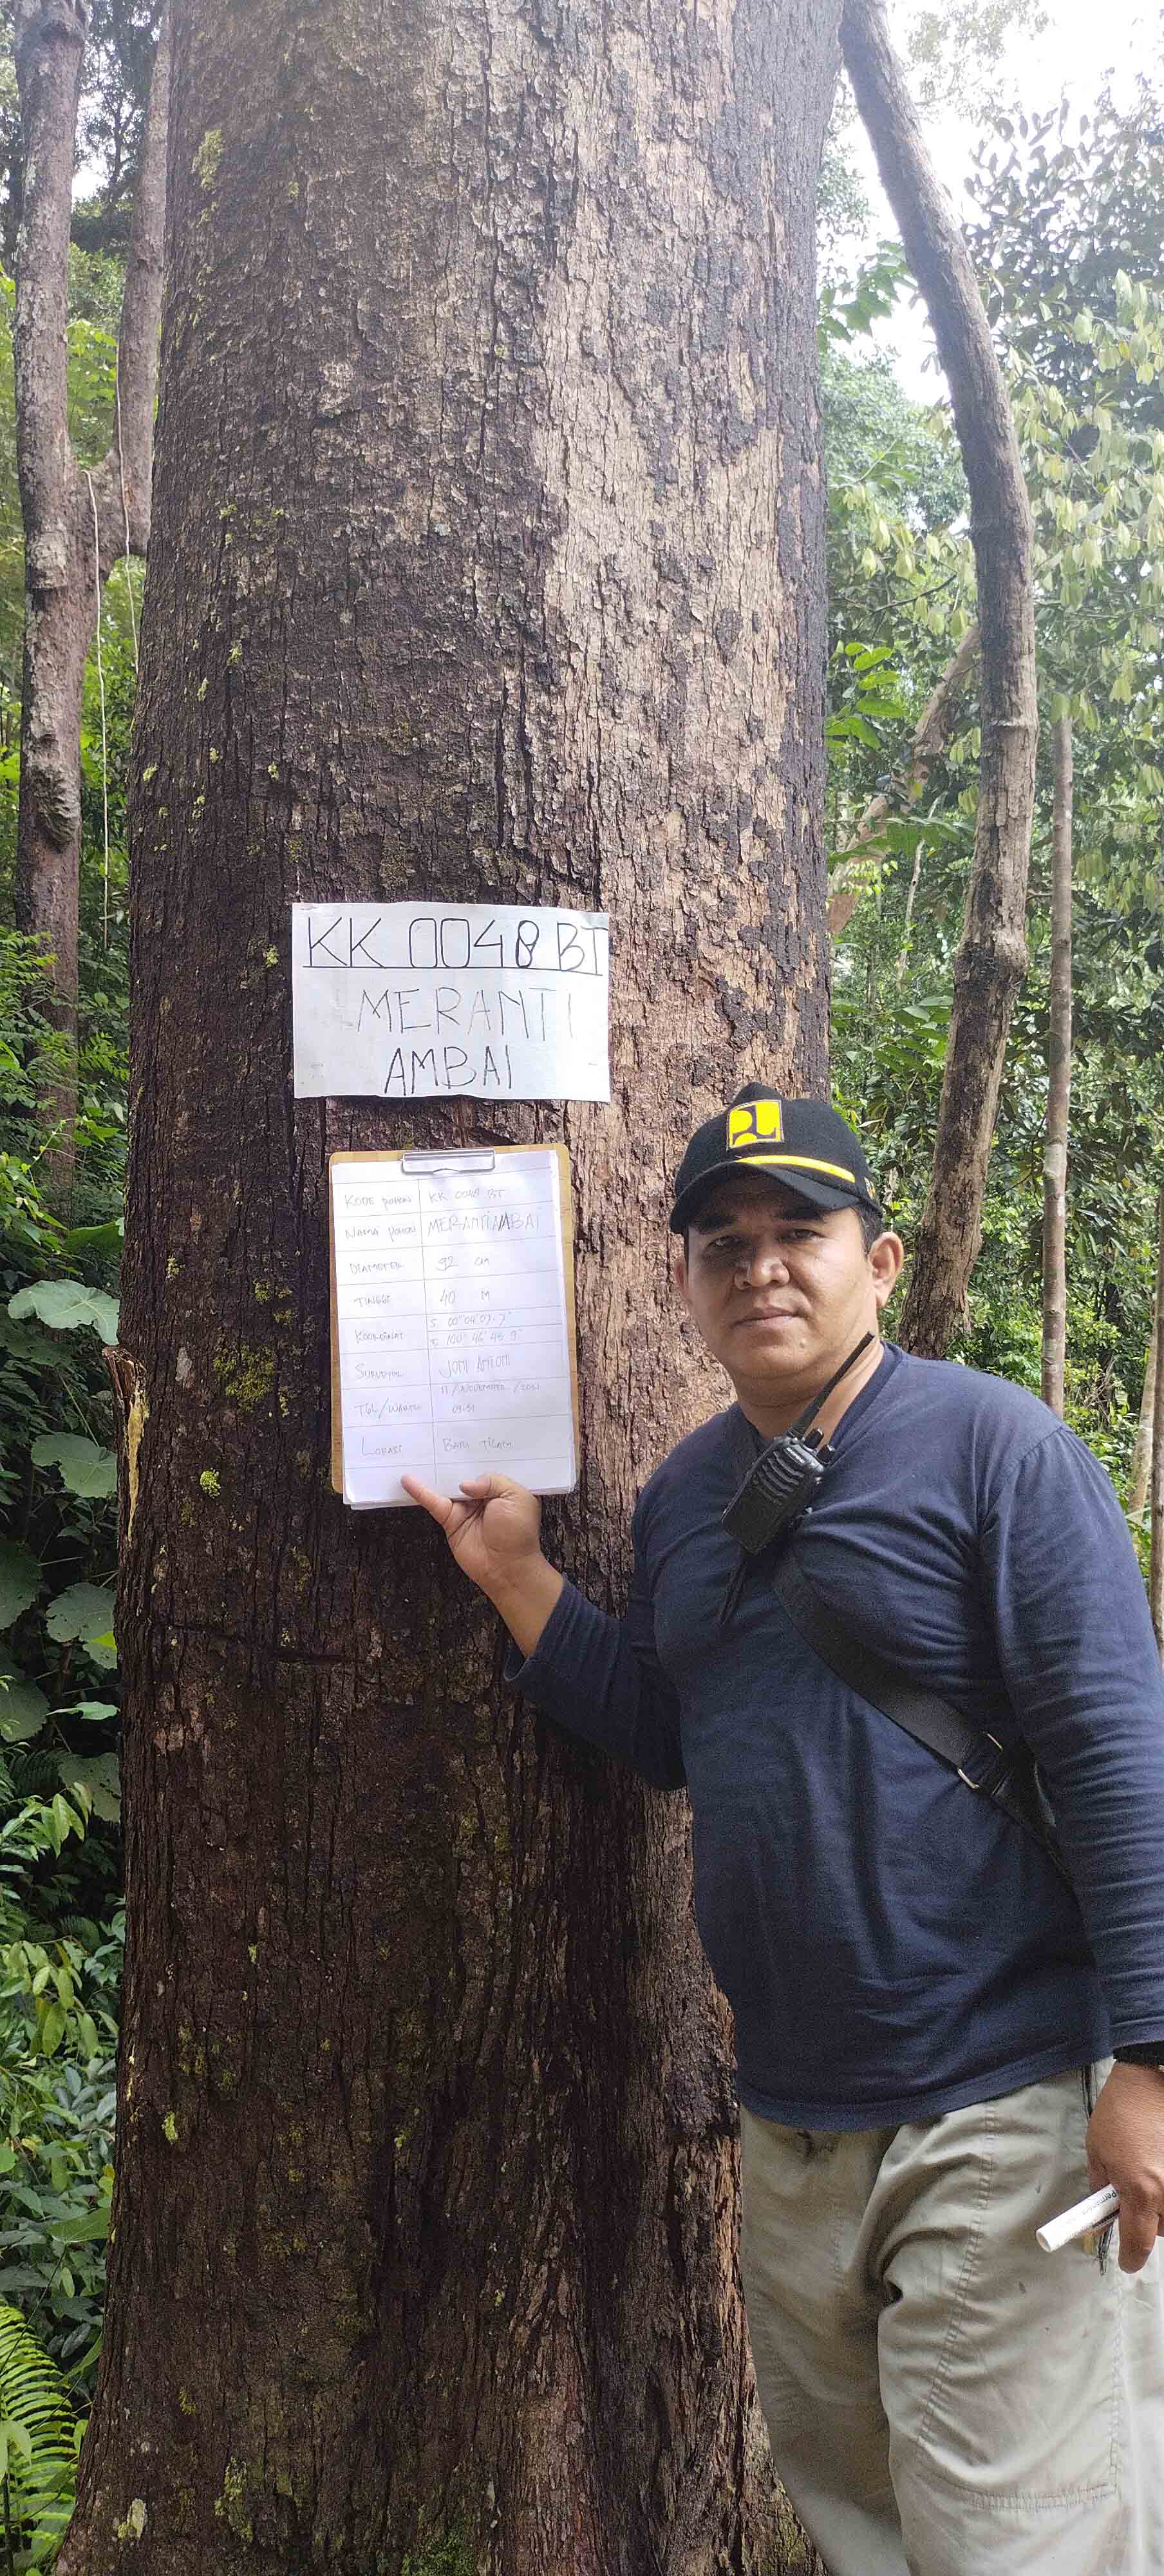 KK 0048 BT
MERANTI
AMBAI
KODE POHON KK 0048 BT
NAMA POHON MERANTI AMBAI
DIAMETER 92 CM
TINGGI 40 M
KOORDINAT S. 00°04'07.7"
E. 100°46'45.9"
SURVEYOR JONI ANTONI
TGL/WAKTU 11/NOVEMBER/
09:51
LOKASI BATU TIGAN
Permanent